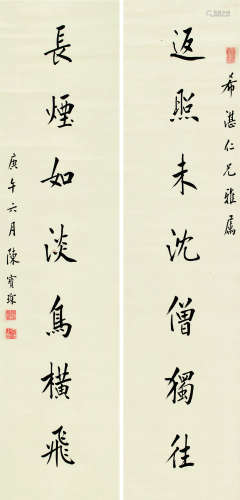 希湛仁兄雅属
返照未沈僧獨往
長煙如淡鳥橫飛
庚午六月陳寶琛